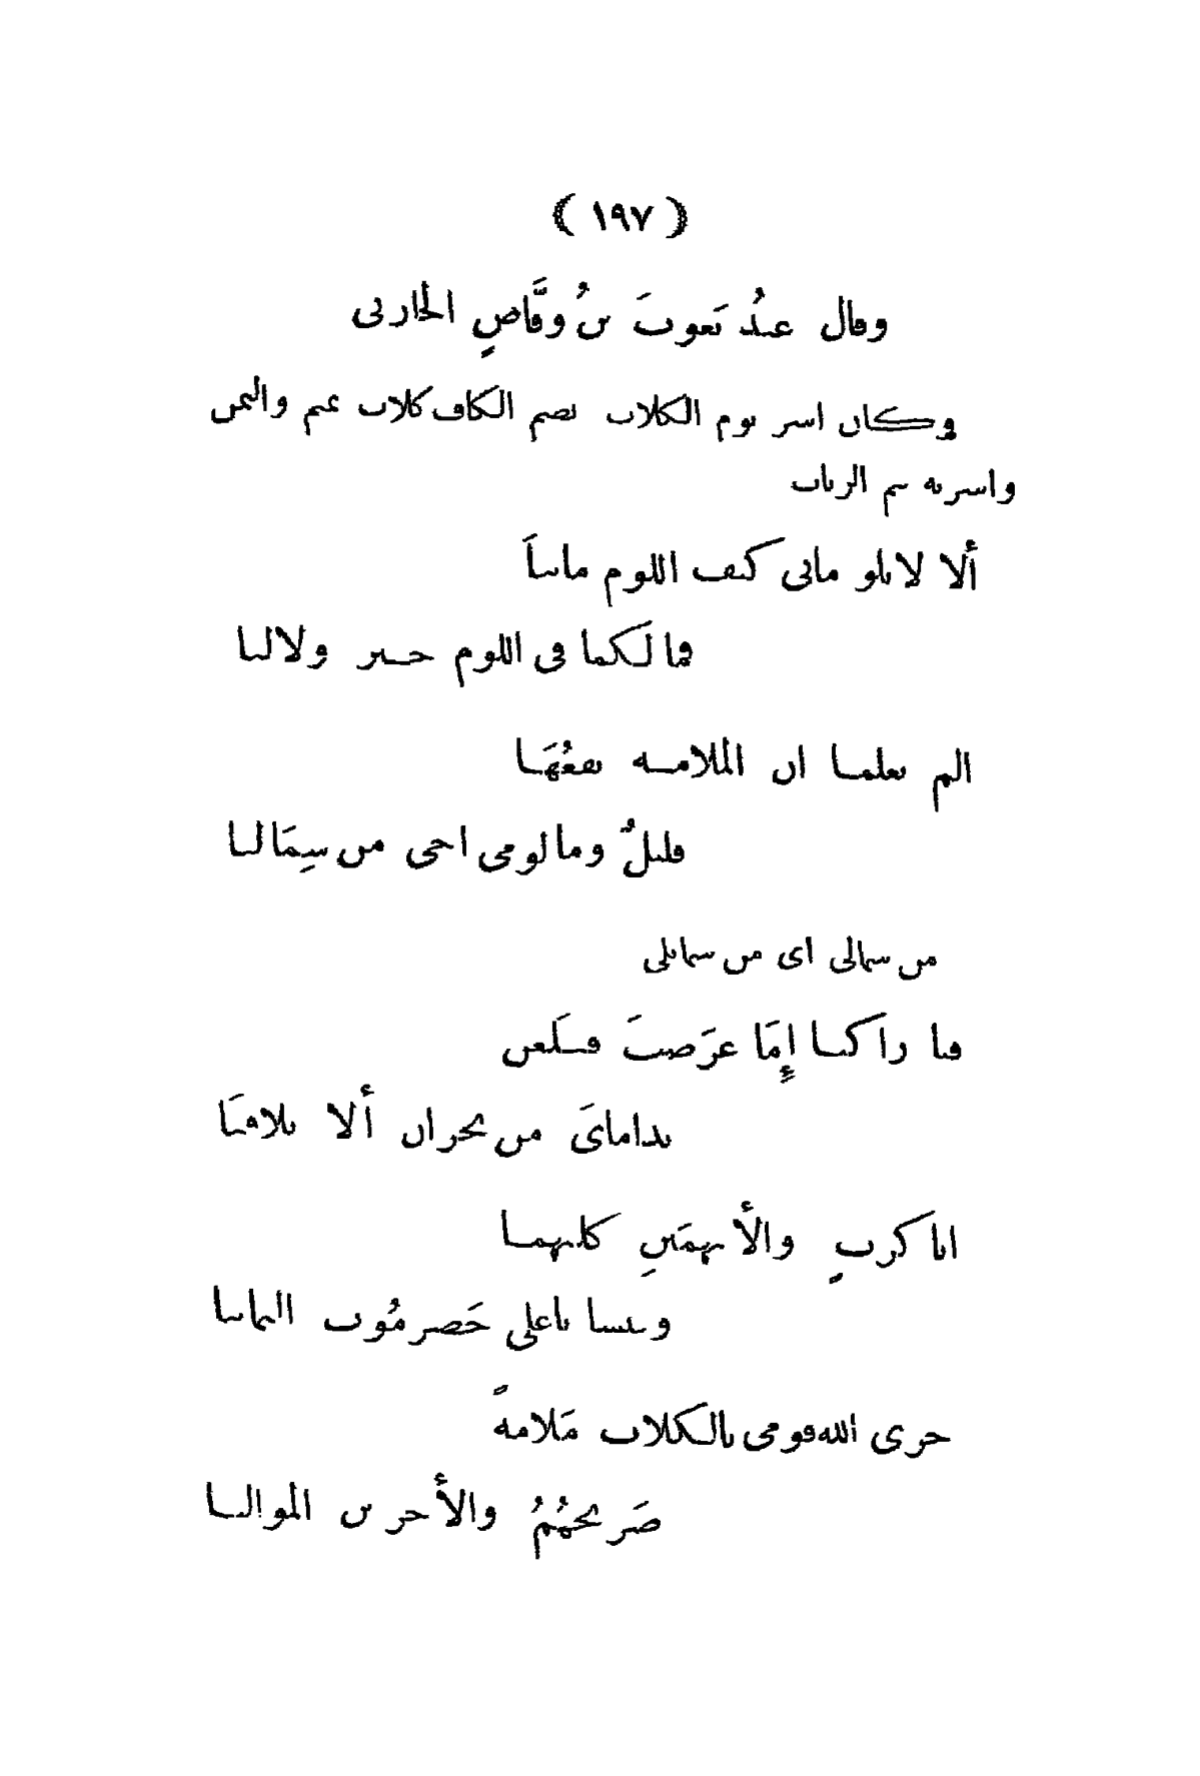 ( ١٩٧ )
وقال عبدُ يَغوثَ بنُ وقَّاصٍ الحارثى
وكان اسر يوم الكلاب بضم الكاف كلاب تميم واليمن
واسرته تيم الرباب
ألا لا تلو مانى كفى اللوم مابيَا
فما لكما فى اللوم خير ولا ليا
الم تعلما ان الملامة نفعُهَا
قليلٌ وما لومى اخى من شِمَاليا
من شمالى اى من شمائلى
فيا راكبا إِمَّا عرَضتَ فبلَغن
نداماىَ من نجران ألا تلاقيَا
ابا كربٍ والأيهمَينِ كليهما
وقيسا باعلى حَضرمُوت اليمانيا
جزى الله قومى بالكلاب مَلامةً
صَريحهُمُ والأخرين المواليا